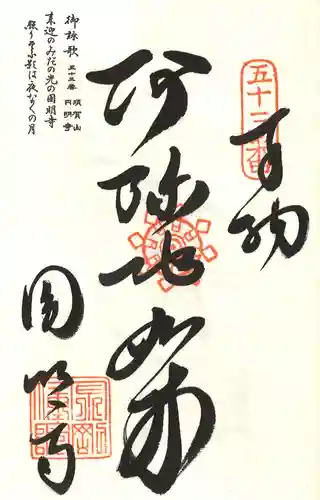 五十三番
奉納
阿弥陀如来
圓明寺
御詠歌 五十三番 須賀山 円明寺
来迎のみだの光の圓明寺
照りそふ影は夜な〱の月